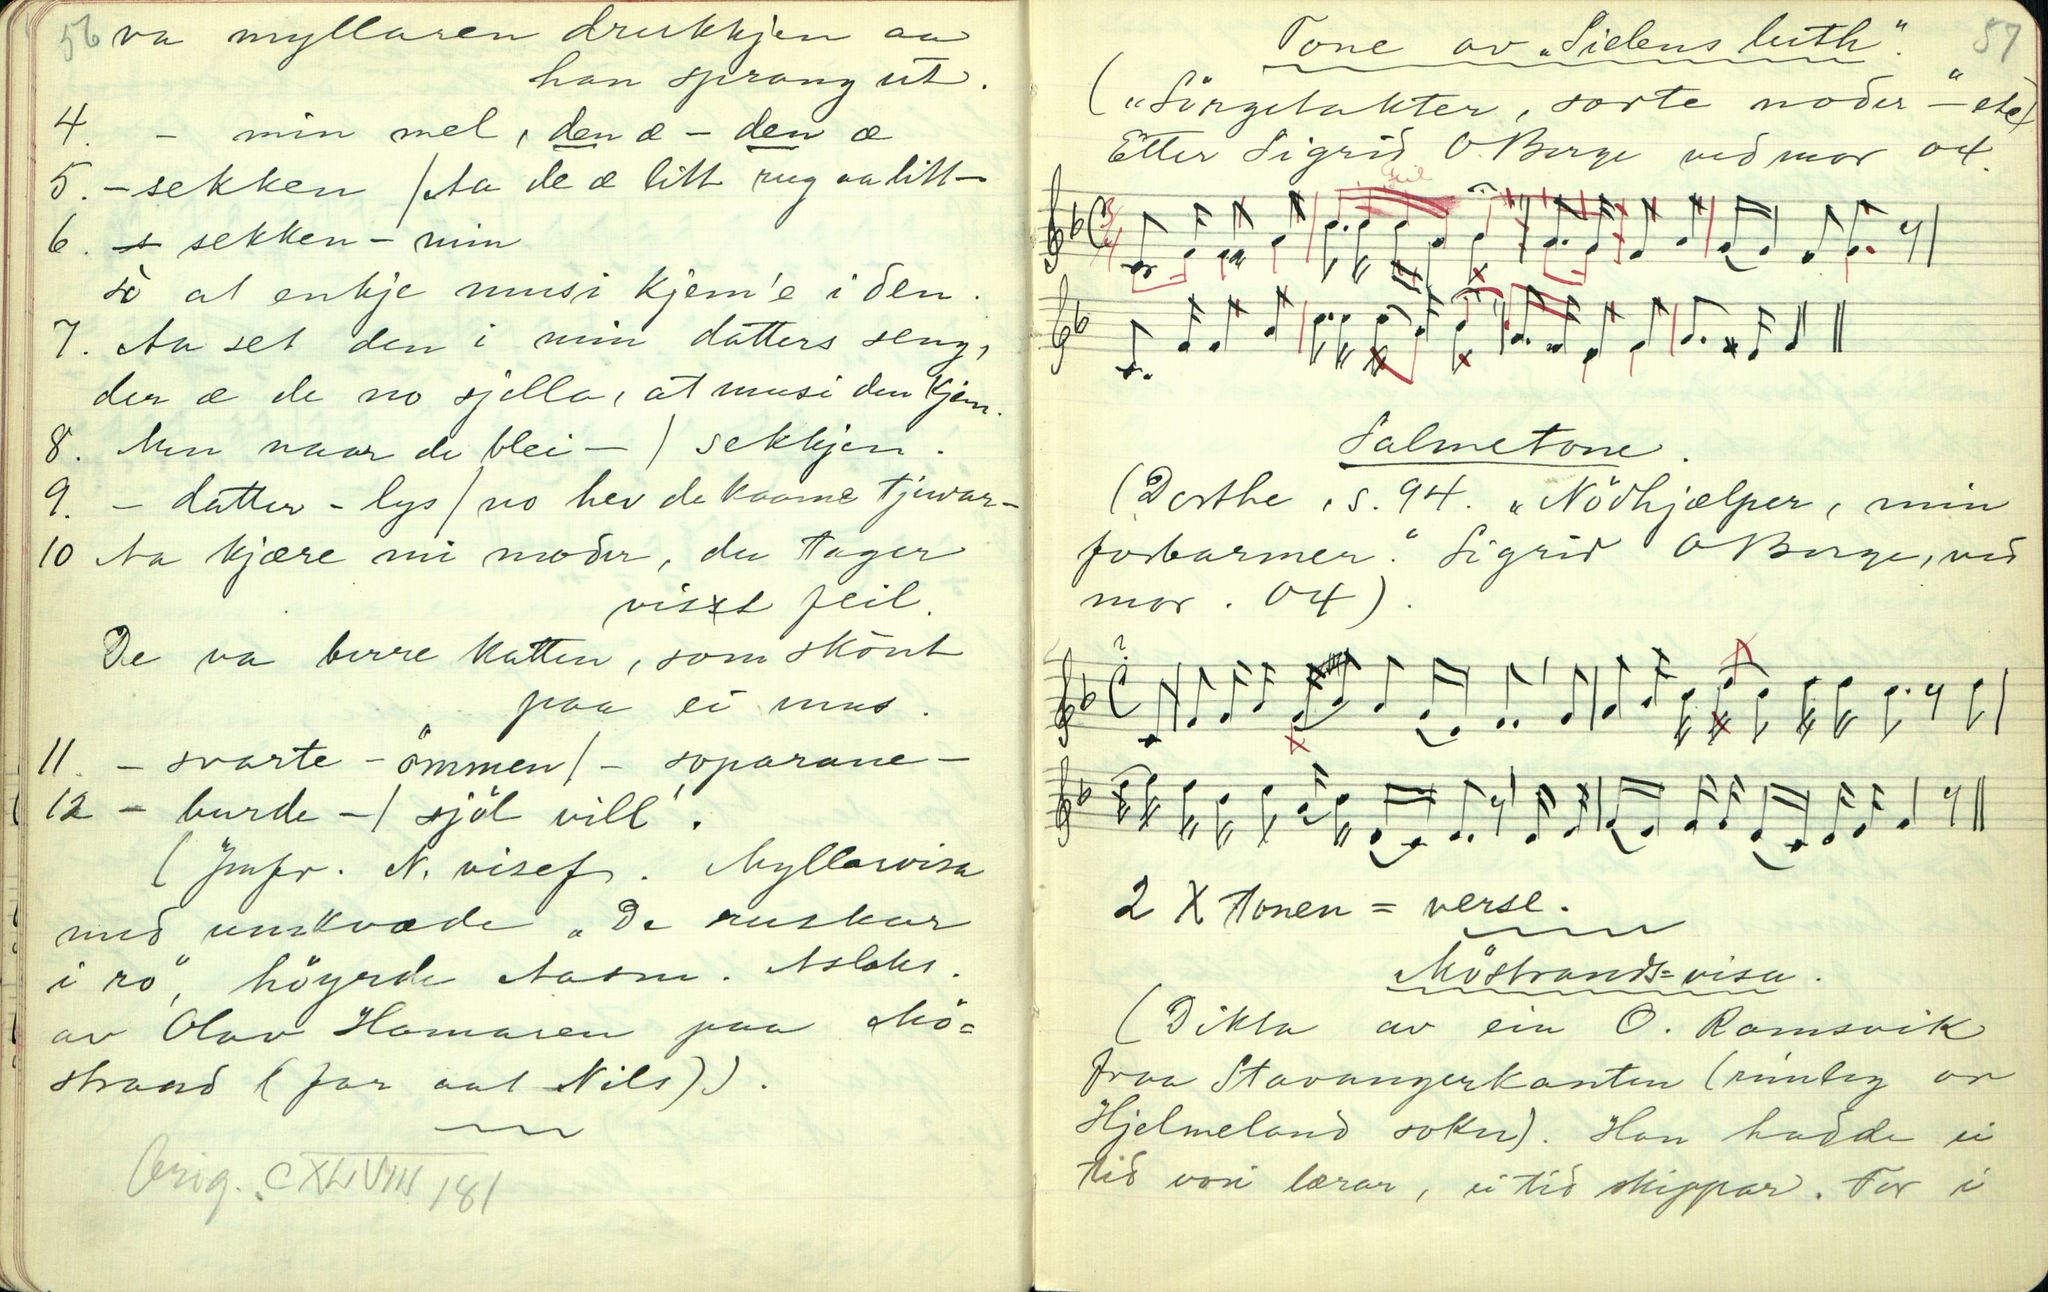 56
va myllaren drukkjen aa
han sprang ut.
4. - min mel, den æ - den æ
5. - sekken / Aa de æ litt rug aa litt -
6. sekken - min
so at enkje musi kjem'e i den.
7. Aa set den i min datters seng,
der æ de no sjella, at musi den kjem.
8. Men naar de blei - / sekkjen.
9. - datter - lys / no hev de kaame tjuvar -
10 Aa kjære mi moder, du tager
visst feil.
De va berre katten, som skönt
paa ei mus.
11. - svarte - ömmen / - soparane -
12 - burde - / sjöl vill'.
(Jmfr. N. visef. Myllarvisa
med umkvæde „De ruskar
i ro", höyrde Aasm. Aslaks.
av Olav Hamaren paa Mö=
strand (far aat Nils)).
Orig. CXLVIII 181
57
Tone av „Sielens luth".
(„Sörgetakter, sorte noder -" etc)
Etter Sigrid O Berge ved mor 04.
Salmetone.
(Dorthe, s. 94. „Nödhjælper, min
forbarmer." Sigrid O Berge, ved
mor. 04).
?
2 X tonen = verse.
Möstrands=visa.
(Dikta av ein O. Ramsvik
fraa Stavangerkanten (rimleg av
Hjelmeland sokn). Han hadde ei
tid vori lærar, ei tid skippar. For i